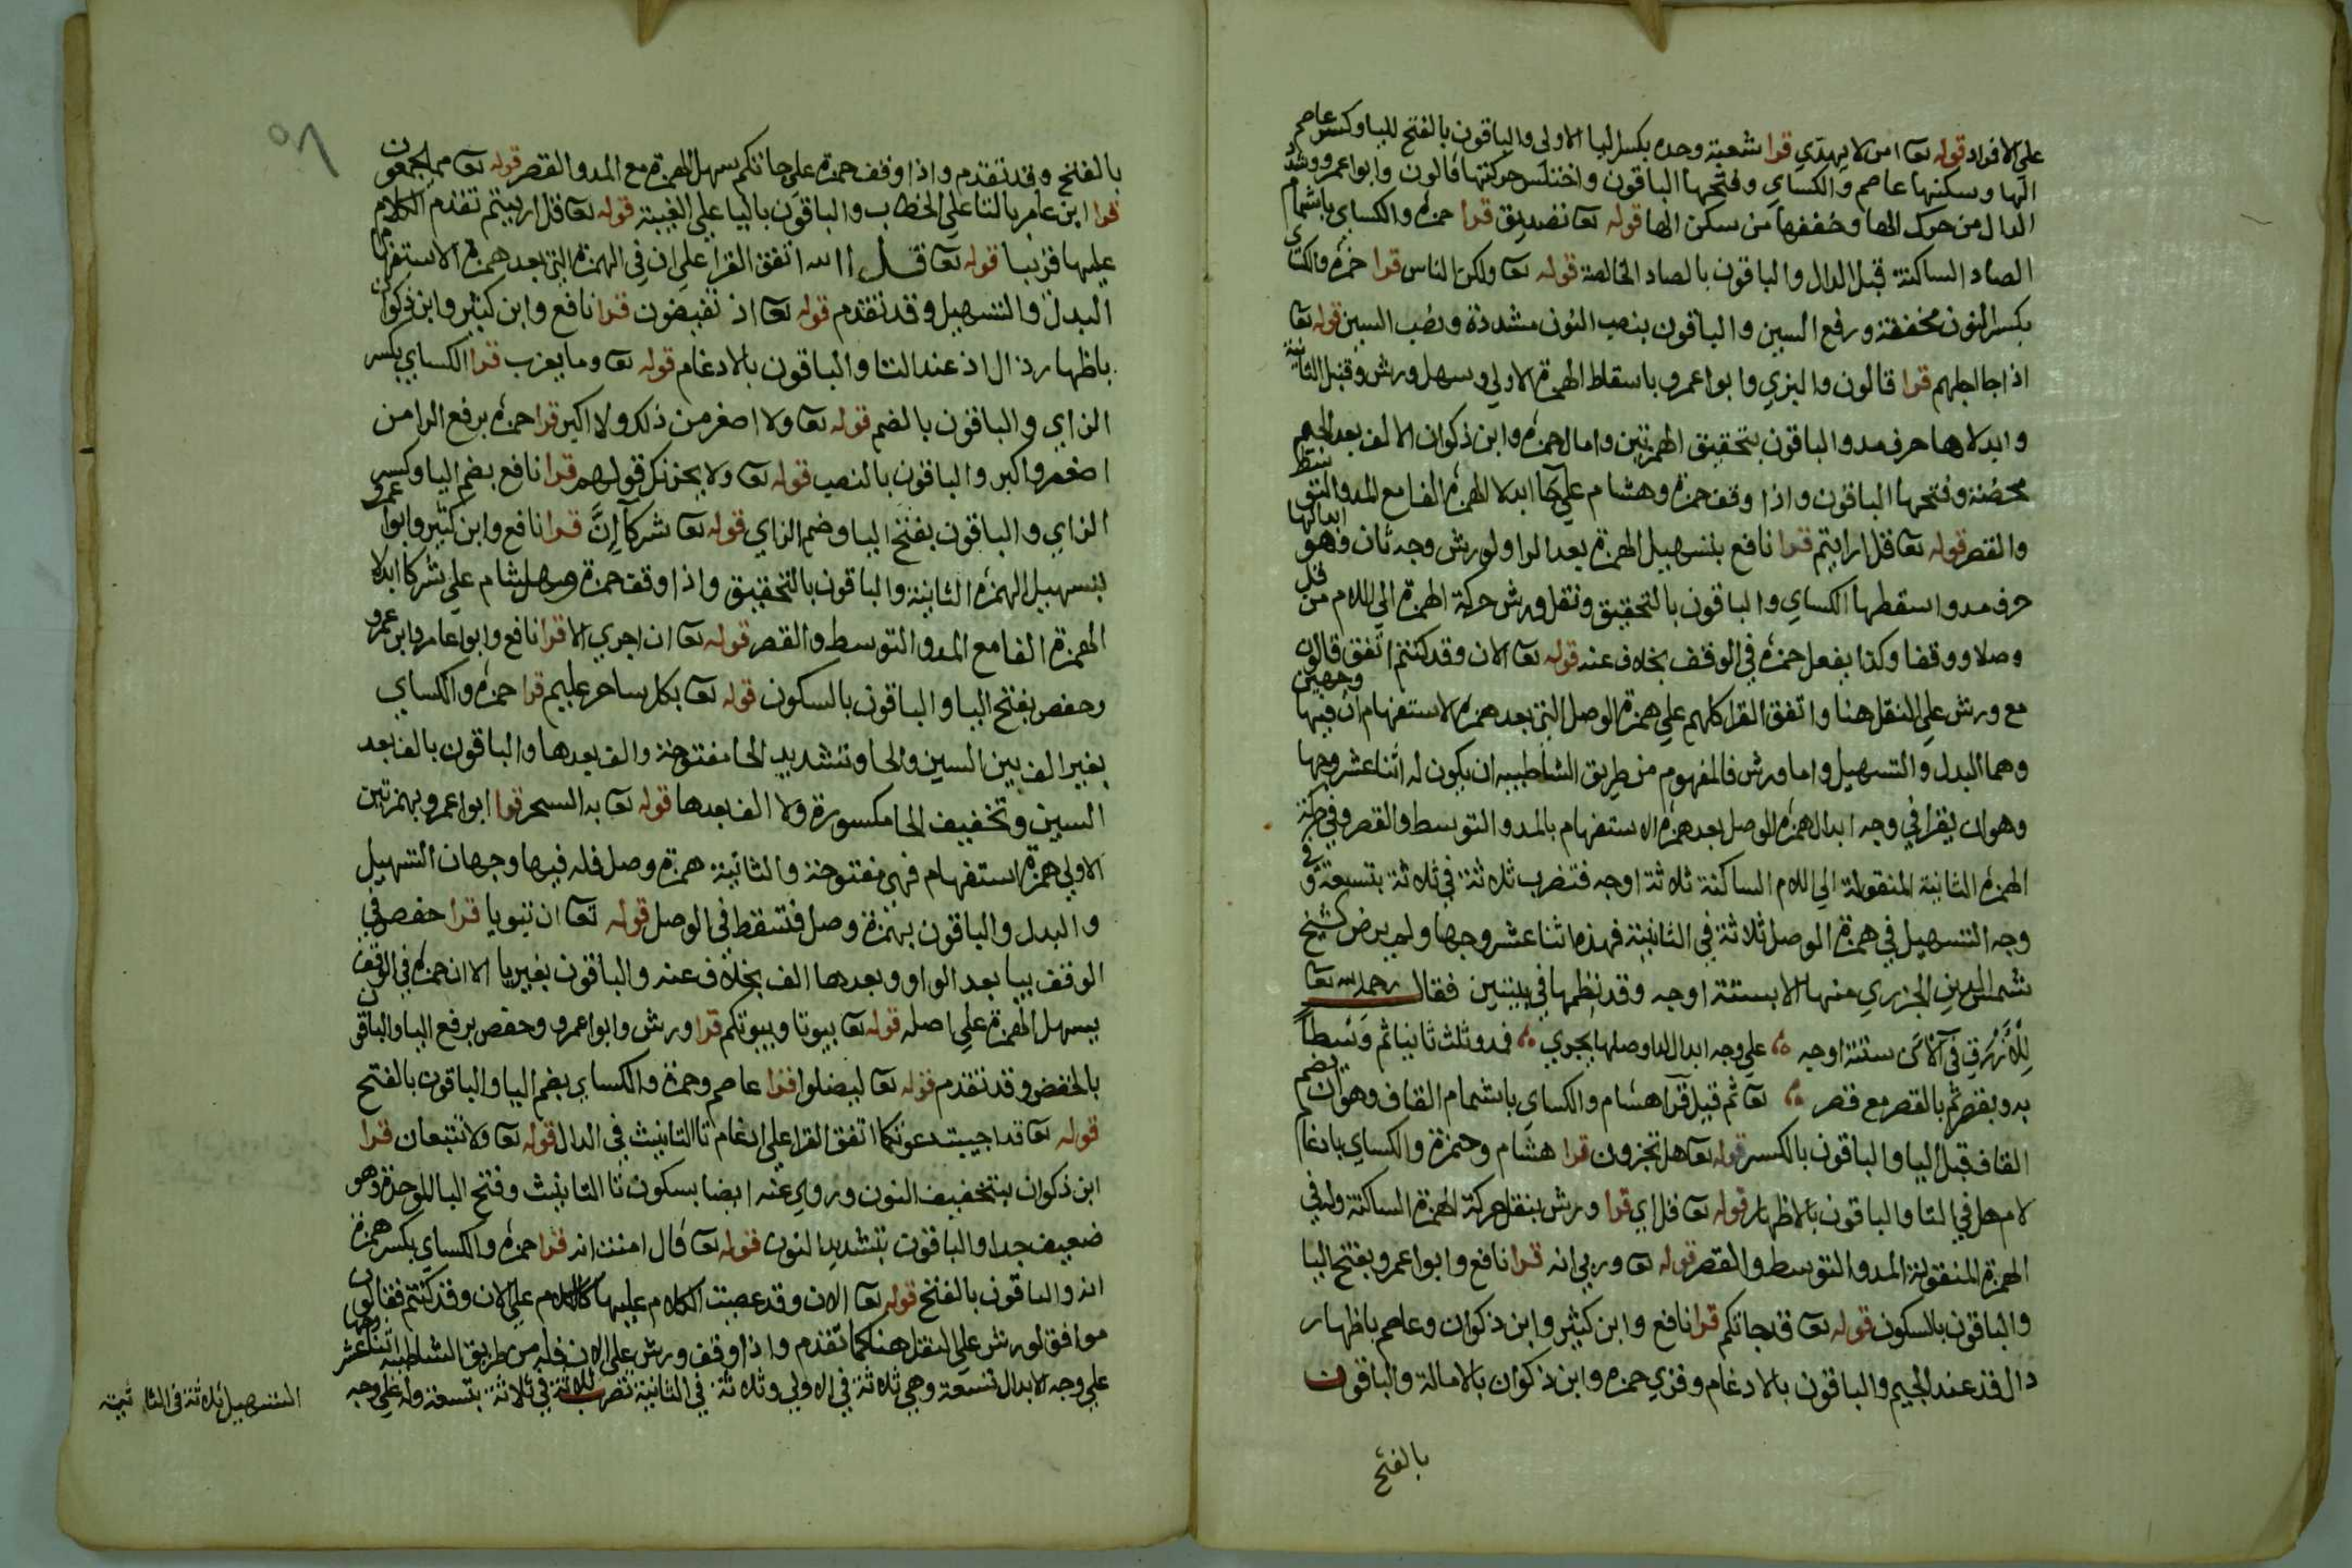 على الافراد قوله تعا امن لا يهدي قرا شعبة وحده بكسر اليا الاولى والباقون بالفتح لليا وكسر عاصم
الها وسكنها عاصم والكساي وفتحها الباقون واختلس حركتها قالون وابوا عمرو وشدد
الدال من حرك الها وخففها من سكن الها قوله تعا تصديق قرا حمزة والكساي باشمام
الصاد الساكنة قبل الدال والباقون بالصاد الخالصة قوله تعا ولكن الناس قرا حمزة والكساي
بكسر النون مخففة ورفع السين والباقون بنصب النون مشددة ونصب السين قوله تعا
اذا جا اجلهم قرا قالون والبزي وابوا عمرو باسقاط الهمزة الاولي وسهل ورش وقنبل الثانية
وابدلاها حرف مد والباقون بتحقيق الهمزتين وامال حمزة وابن ذكوان الالف بعد الجيم
محضة وفتحها الباقون واذا وقف حمزة وهشام علي جا ابدلا الهمزة الفا مع المد والتوسط
والقصر قوله تعا قل ارايتم قرا نافع بتسهيل الهمزة بعد الرا ولورش وجه ثان وهو ابدالها
حرف مد واسقطها الكساي والباقون بالتحقيق ونقل ورش حركة الهمزة الي اللام من قل
وصلا ووقفا وكذا يفعل حمزة في الوقف بخلاف عنه قوله تعا الان وقد كنتم اتفق قالون
مع ورش علي النقل هنا واتفق القرا كلهم علي همزة الوصل التي بعد همزة الاستفهام ان فيها وجهين
وهما البدل والتسهيل واما ورش فالمفهوم من طريق الشاطبيه ان يكون له اثنا عشر وجها
وهو ان يقرا في وجه ابدال همزة الوصل بعد همزة الاستفهام بالمد والتوسط والقصر وفي حركة
الهمزة الثانية المنقولة الي اللام الساكنة ثلاثة اوجه فتضرب ثلاثة في ثلاثة بتسعة وفي
وجه التسهيل في همزة الوصل ثلاثة في الثانية فهذه اثنا عشر وجها ولم يرض الشيخ
شمس الدين الجزري منها الا بستة اوجه وقد نظمها في بيتين فقال رحمه الله تعا
للازرق في آلآن ستة اوجه علي وجه ابدال لدا وصلها يجري فمد وثلث ثانيا ثم وسطاً
به وبقصر ثم بالقصر مع قصر تعا ثم قيل قرآ هشام والكساي باشمام القاف وهو ان يضم
القاف قبل اليا والباقون بالكسر قوله تعا هل تجزون قرا هشام وحمزة والكساي بادغام
لام هل في التا والباقون بالاظهار قوله تعا قل اي قرا ورش بنقل حركة الهمزة الساكنة وله في
الهمزة المنقولة المد والتوسط والقصر قوله تعا وربي انه قرا نافع وابوا عمرو بفتح اليا
والباقون بالسكون قوله تعا قد جاتكم قرا نافع وابن كثير وابن ذكوان وعاصم باظهار
دال قد عند الجيم والباقون بالادغام وقري حمزة وابن ذكوان بالامالة والباقون
بالفتح
بالفتح وقد تقدم واذا وقف حمزة علي جاتكم سهل الهمزة مع المد والقصر قوله تعا مما يجمعون
قرا ابن عامر بالتا علي الخطاب والباقون باليا علي الغيبة قوله تعا قل ارييتم تقدم الكلام
عليها قريبا قوله تعا قل االله اتفق القرا علي ان في الهمزة التي بعد همزة الاستفهام
البدل والتسهيل وقد تقدم قوله تعا اذ تفيضون قرا نافع وابن كثير وابن ذكوان
باظهار ذال اذ عند التا والباقون بالادغام قوله تعا وما يعزب قرا الكساي بكسر
الزاي والباقون بالضم قوله تعا ولا اصغر من ذلك ولا اكبر قرا حمزة برفع الرا من
اصغر واكبر والباقون بالنصب قوله تعا ولا يحزنك قولهم قرا نافع بضم اليا وكسر
الزاي والباقون بفتح اليا وضم الزاي قوله تعا شركآ اِنَّ قرا نافع وابن كثير وابوا عمرو
بتسهيل الهمزة الثانية والباقون بالتحقيق واذا وقف حمزة وهشام علي شركا ابدلا
الهمزة الفا مع المد والتوسط والقصر قوله تعا ان اجري الا قرا نافع وابوا عامر وابن عمرو
وحفص بفتح اليا والباقون بالسكون قوله تعا بكل ساحر عليم قرا حمزة والكساي
بغير الف بين السين والحا وتشديد الحا مفتوحة والف بعدها والباقون بالف بعد
السين وتخفيف الحا مكسورة ولا الف بعدها قوله تعا به السحر قرا ابوا عمرو بهمزتين
الاولي همزة استفهام فهي مفتوحة والثانية همزة وصل فله فيها وجهان التسهيل
والبدل والباقون بهمزة وصل فتسقط في الوصل قوله تعا ان تبويا قرا حفص في
الوقف بيا بعد الواو وبعدها الف بخلاف عنه والباقون بغير يا الا ان حمزة في الوقف
يسهل الهمزة علي اصله قوله تعا بيوتا وبيوتكم قرا ورش وابوا عمرو وحفص برفع البا والباقون
بالخفض وقد تقدم قوله تعا ليضلوا قرا عاصم وحمزة والكساي بضم اليا والباقون بالفتح
قوله تعا قد اجيبت دعوتكما اتفق القرا علي ادغام تا التانيث في الدال قوله تعا ولا تتبعان قرا
ابن ذكوان بتخفيف النون وروي عنه ايضا بسكون تا التانيث وفتح البا الموحدة وهو
ضعيف جدا والباقون بتشديد النون قوله تعا قال امنت انه قرا حمزة والكساي بكسر همزة
انه والباقون بالفتح قوله تعا الان وقد عصيت الكلام عليها كالكلام علي الان وقد كنتم فقالون
موافق لورش علي النقل هنا كما تقدم واذا وقف ورش علي الان فله من طريق الشاطبيه اثنا عشر وجها
علي وجه الابدال تسعة وهي ثلاثة في الاولي وثلاثة في الثانية تضرب ثلاثة في ثلاثة بتسعة وله علي وجه
التسهيل ثلاثة في الثانية